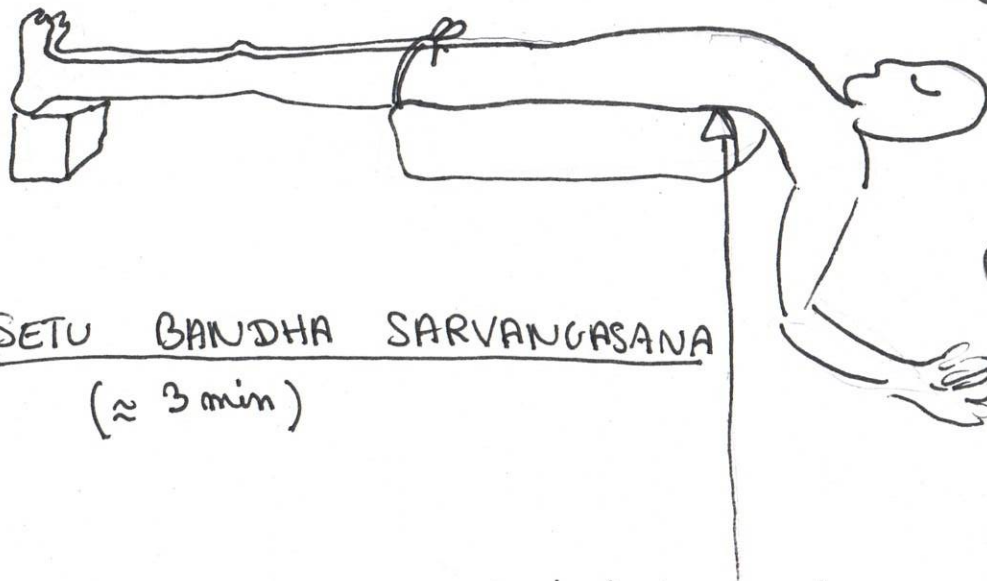 SETU BANDHA SARVANGASANA
(≈ 3 min)